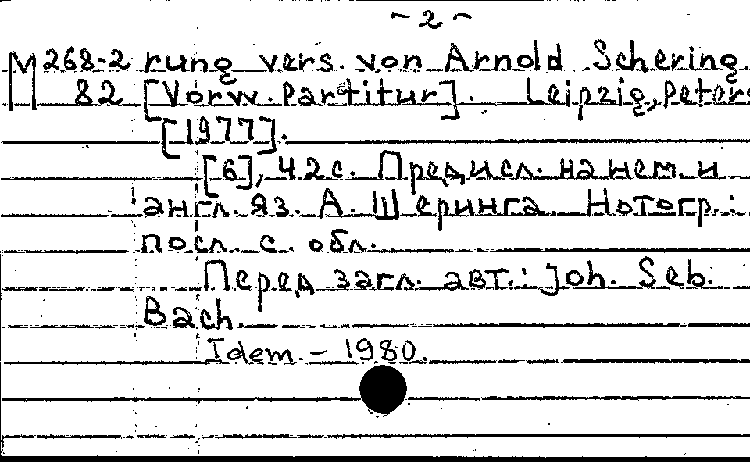 - 2 -
М 268-2 rung vers. von Arnold Schering.
82 [Vorw. Partitur]. Leipzig, Peters
[1977].
[6], 42 с. Предисл. на нем. и
англ. яз. А. Шеринга. Нотогр.:
посл. с. обл.
Перед загл. авт.: Joh. Seb.
Bach.
Idem. - 1980.